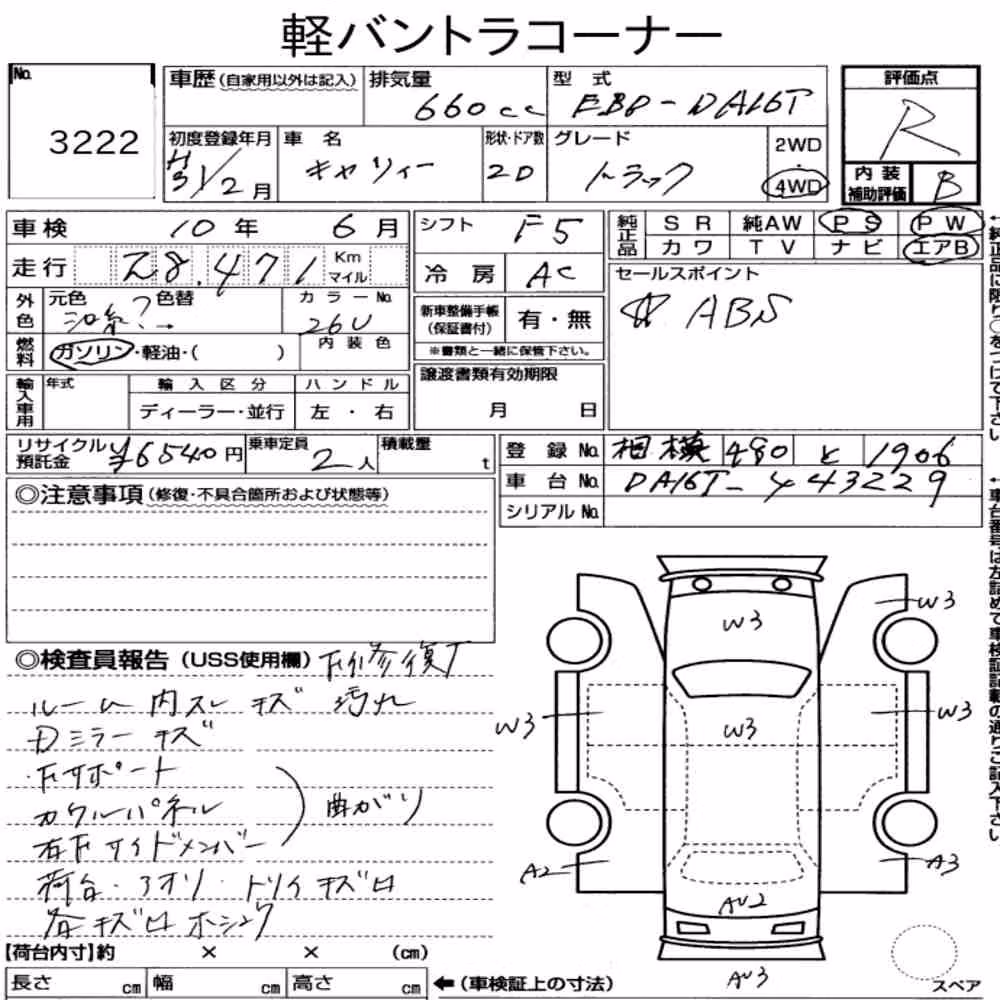 軽バントラコーナー
No. 3222
車歴 (自家用以外は記入)
排気量 660cc
型式 EBD-DA16T
評価点 R
初度登録年月 H31/2月
車名 キャリィー
形状・ドア数 2D
グレード トラック
2WD
4WD
内装補助評価 B
車検 10年 6月
シフト F5
純正品 SR 純AW PS PW
カワ TV ナビ エアB
走行 28,471 Km マイル
冷房 AC
セールスポイント
ABS
外色 元色 色替
カラーNo. 26U
新車整備手帳(保証書付) 有・無
※書類と一緒に保管下さい。
燃料 ガソリン・軽油・( )
内装色
譲渡書類有効期限
月 日
輸入車用 年式 輸入区分 ハンドル
ディーラー・並行 左・右
リサイクル預託金 ¥6540円
乗車定員 2人
積載量 t
登録No. 相模 480 と 1906
車台No. DA16T-443229
シリアルNo.
◎注意事項 (修復・不具合箇所および状態等)
◎検査員報告 (USS使用欄) 下修復
ルーム内スレ キズ 汚れ
Dミラーキズ
下サポート
カウルパネル
右下サイドメンバー
曲がり
荷台・アオリ・トリイキズ
各キズ
W3
W3
W3
W3
W3
A2
A3
AU2
AU3
【荷台内寸】約 × × (cm)
長さ cm 幅 cm 高さ cm ←(車検証上の寸法)
スペア
↑純正品に限り○をつけて下さい。
↑車台番号は左詰めで車検証記載の通りご記入下さい。